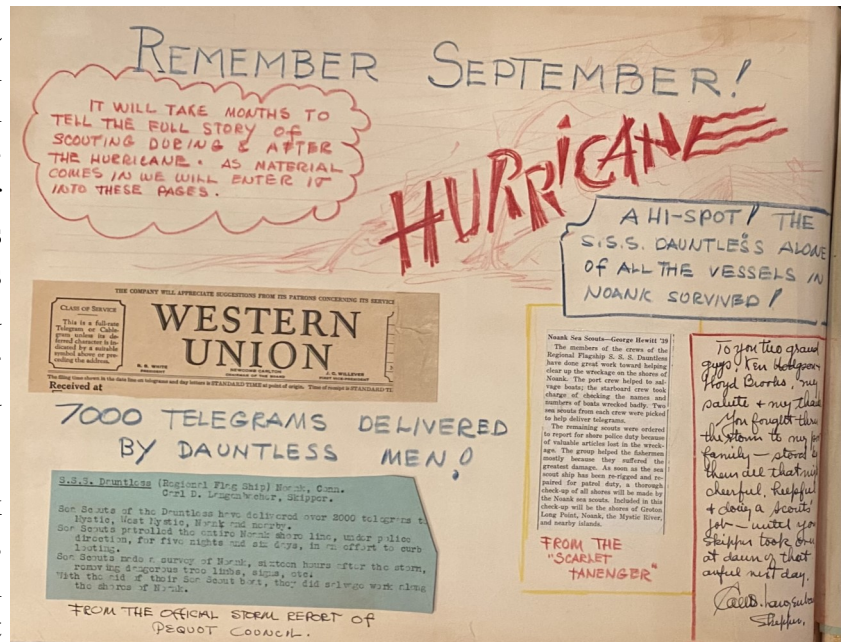 REMEMBER SEPTEMBER!
IT WILL TAKE MONTHS TO
TELL THE FULL STORY OF
SCOUTING DURING & AFTER
THE HURRICANE. AS MATERIAL
COMES IN WE WILL ENTER IT
INTO THESE PAGES.
HURRICANE
A HI-SPOT! THE
S.S.S. DAUNTLESS ALONE
OF ALL THE VESSELS IN
NOANK SURVIVED!
THE COMPANY WILL APPRECIATE SUGGESTIONS FROM ITS PATRONS CONCERNING ITS SERVICE
CLASS OF SERVICE
This is a full-rate
Telegram or Cable-
gram unless its de-
ferred character is in-
dicated by a suitable
symbol above or pre-
ceding the address.
WESTERN
UNION
R. B. WHITE
PRESIDENT
NEWCOMB CARLTON
CHAIRMAN OF THE BOARD
J. C. WILLEVER
FIRST VICE-PRESIDENT
The filing time shown in the date line on telegrams and day letters is STANDARD TIME at point of origin. Time of receipt is STANDARD TI
Received at
7000 TELEGRAMS DELIVERED
BY DAUNTLESS MEN!
S.S.S. Dauntless (Regional Flag Ship) Noank, Conn.
Carl D. Skipper.
Sea Scouts of the Dauntless have delivered over 2000 telegrams t
Mystic, West Mystic, Noank and nearby.
Sea Scouts patrolled the entire Noank shore line, under police
direction, for five nights and six days, in an effort to curb
looting.
Sea Scouts made a survey of Noank, sixteen hours after the storm,
removing dangerous tree limbs, signs, etc.
With the aid of their Sea Scout boat, they did salvage work along
the shores of Noank.
FROM THE OFFICIAL STORM REPORT OF
PEQUOT COUNCIL.
Noank Sea Scouts—George Hewitt '39
The members of the crews of the
Regional Flagship S. S. S. Dauntless
have done great work toward helping
clear up the wreckage on the shores of
Noank. The port crew helped to sal-
vage boats; the starboard crew took
charge of checking the names and
numbers of boats wrecked badly. Two
sea scouts from each crew were picked
to help deliver telegrams.
The remaining scouts were ordered
to report for shore police duty because
of valuable articles lost in the wreck-
age. The group helped the fishermen
mostly because they suffered the
greatest damage. As soon as the sea
scout ship has been re-rigged and re-
paired for patrol duty, a thorough
check-up of all shores will be made by
the Noank sea scouts. Included in this
check-up will be the shores of Groton
Long Point, Noank, the Mystic River,
and nearby islands.
FROM THE
"SCARLET
TANENGER"
To you two grand
guys, Ken
Floyd Brooks, my
salute & my
You fought thru
the storm to my
family — stood by
them all that
cheerful, helpful
& doing a Scouts
job — until your
Skipper took over
at dawn of that
awful next day.
Skipper.